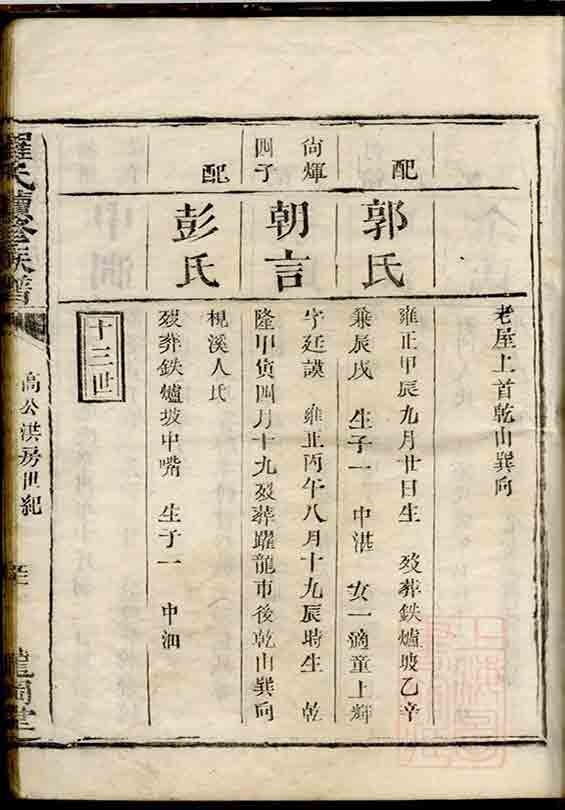 老屋上首乾山巽向
配
郭氏
雍正甲辰九月廿日生 歿葬鉄爐坡乙辛
兼辰戌 生子一 中湛 女一適童上輝
尙煇
四子
朝言
字廷謨 雍正丙午八月十九辰時生 乾
隆甲寅四月十九歿葬躍龍市後乾山巽向
配
彭氏
梘溪人氏
歿葬鉄爐坡中嘴 生子一 中泗
十三世
羅氏續修族譜
高公洪房世紀